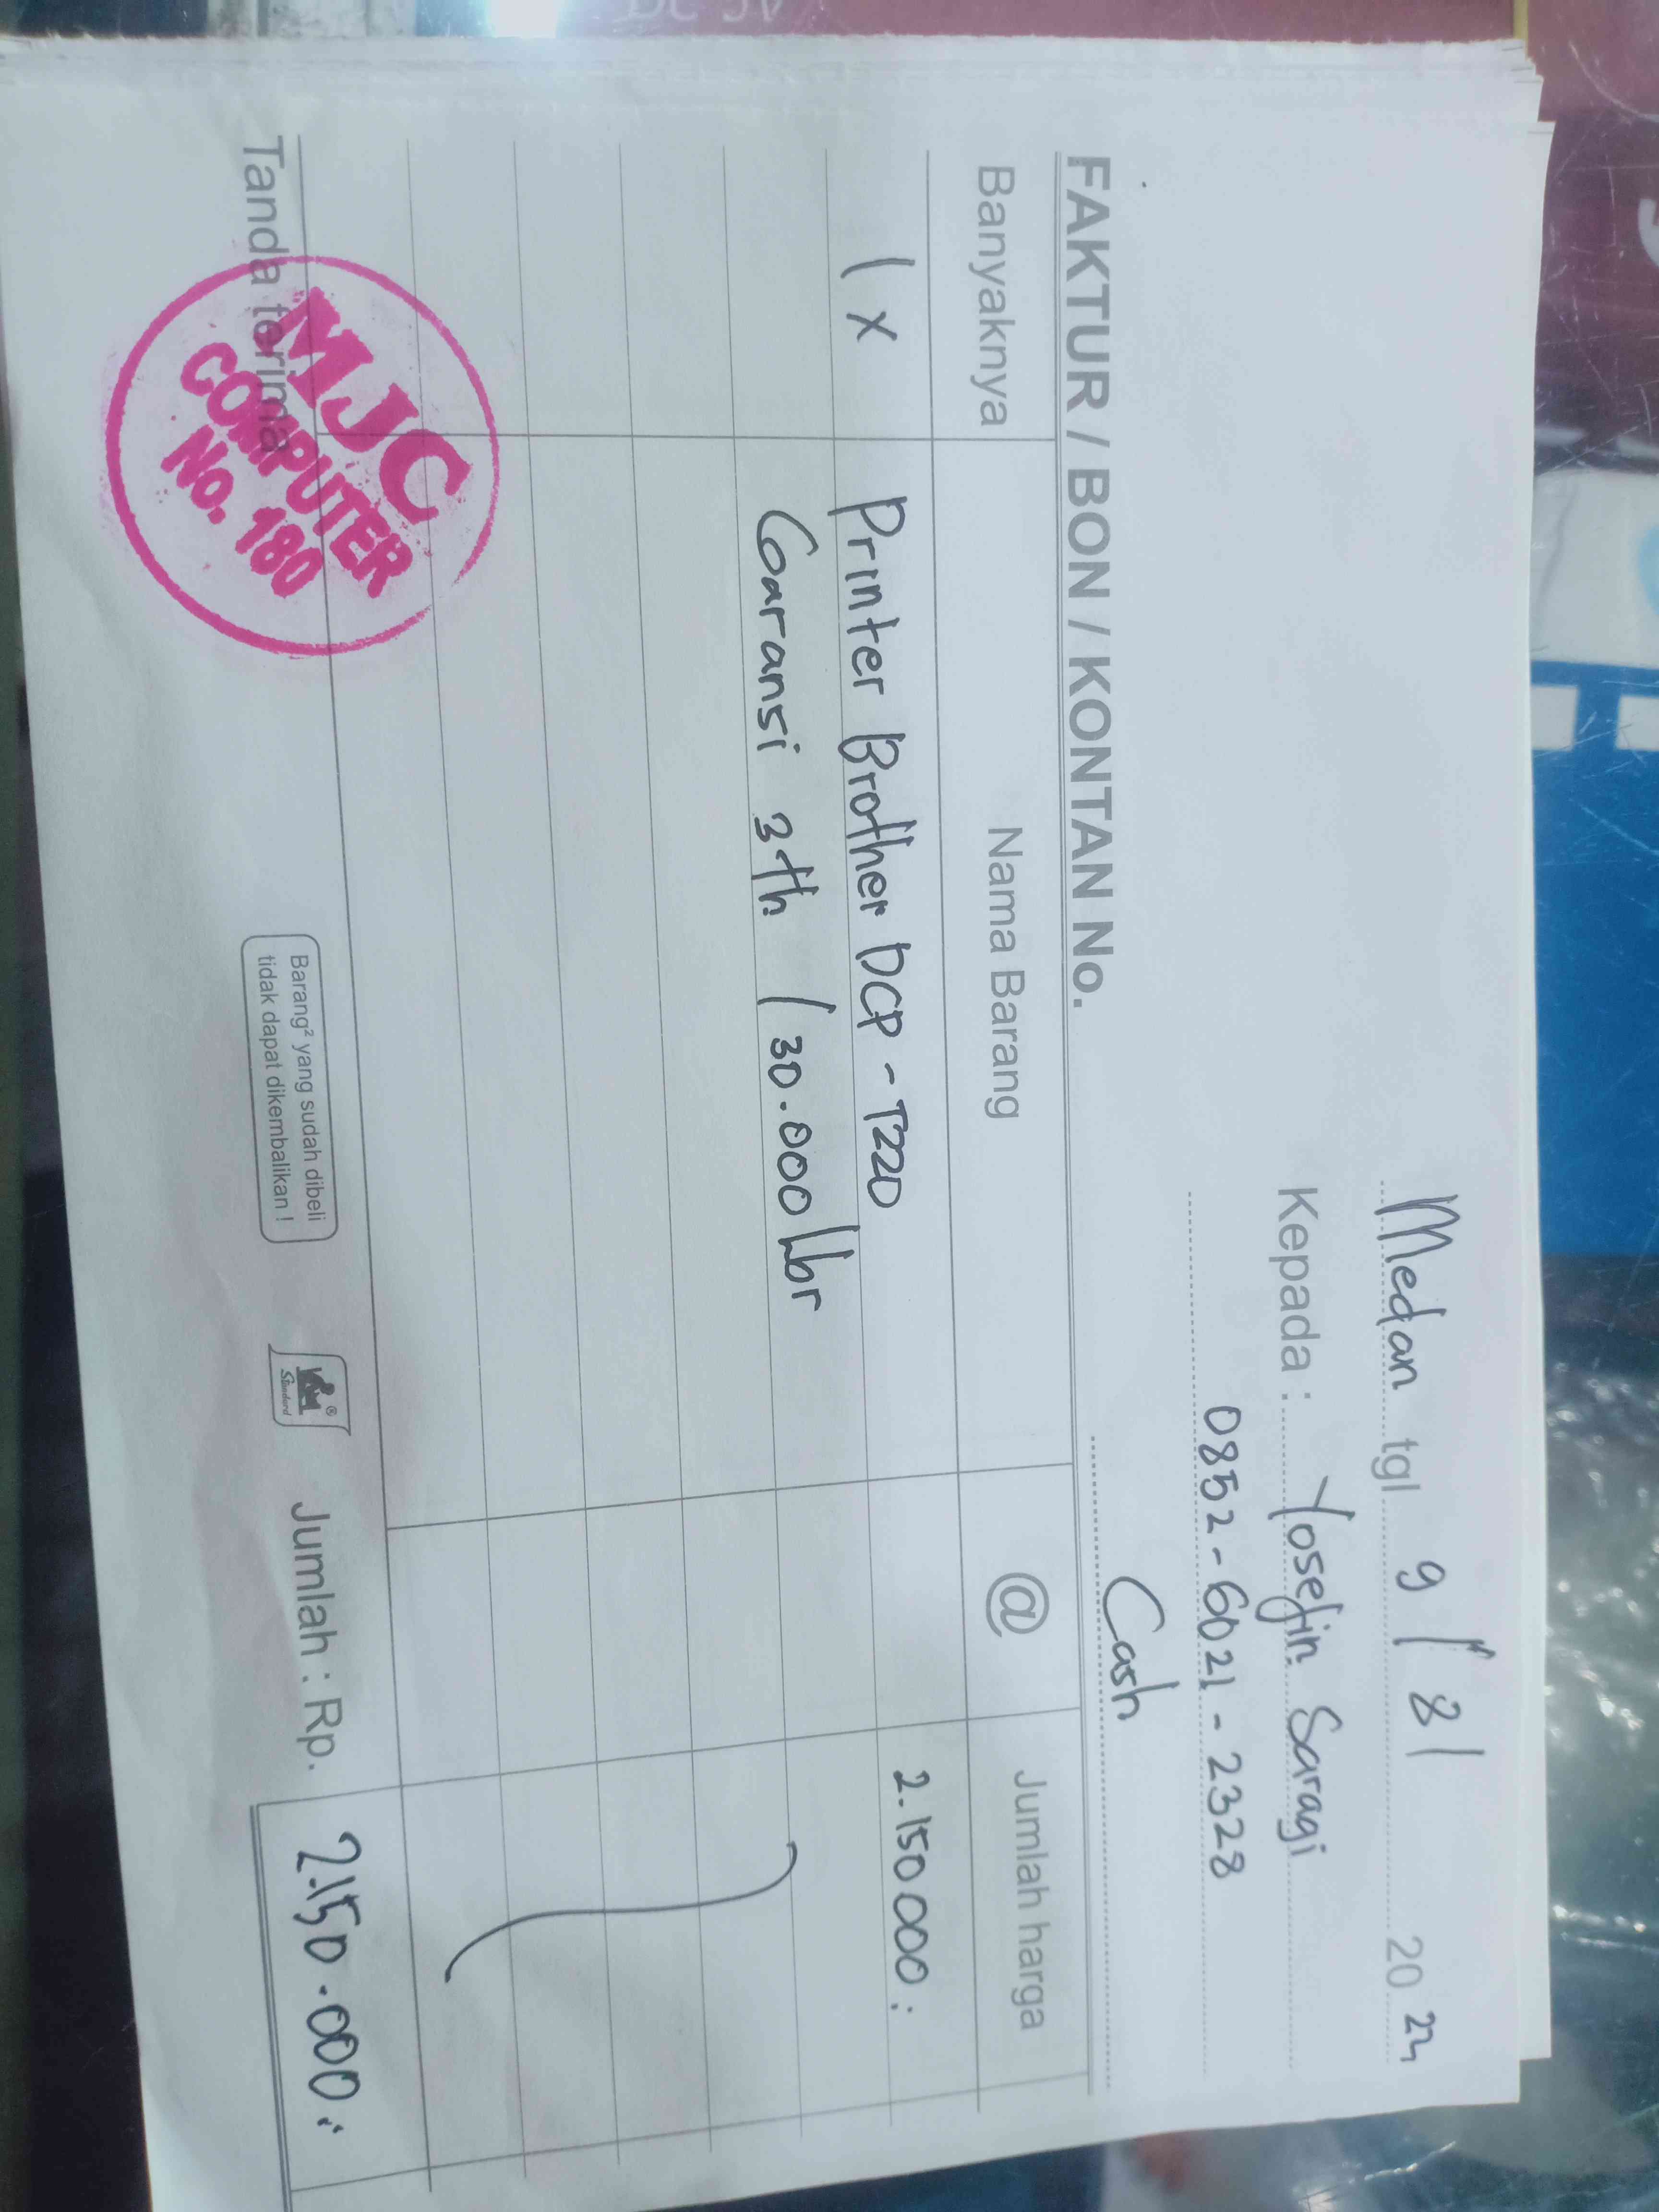 Medan tgl 9 / 8 2024
Kepada : Yosefin Saragi
0852-6021-2328
FAKTUR / BON / KONTAN No. Cash
Banyaknya Nama Barang @ Jumlah harga
1 x Printer Brother DCP-T220 2.150000
Garansi 3th / 30.000 lbr
Tanda terima
MJC
COMPUTER
No. 180
Barang² yang sudah dibeli
tidak dapat dikembalikan !
Standard
Jumlah : Rp. 2.150.000